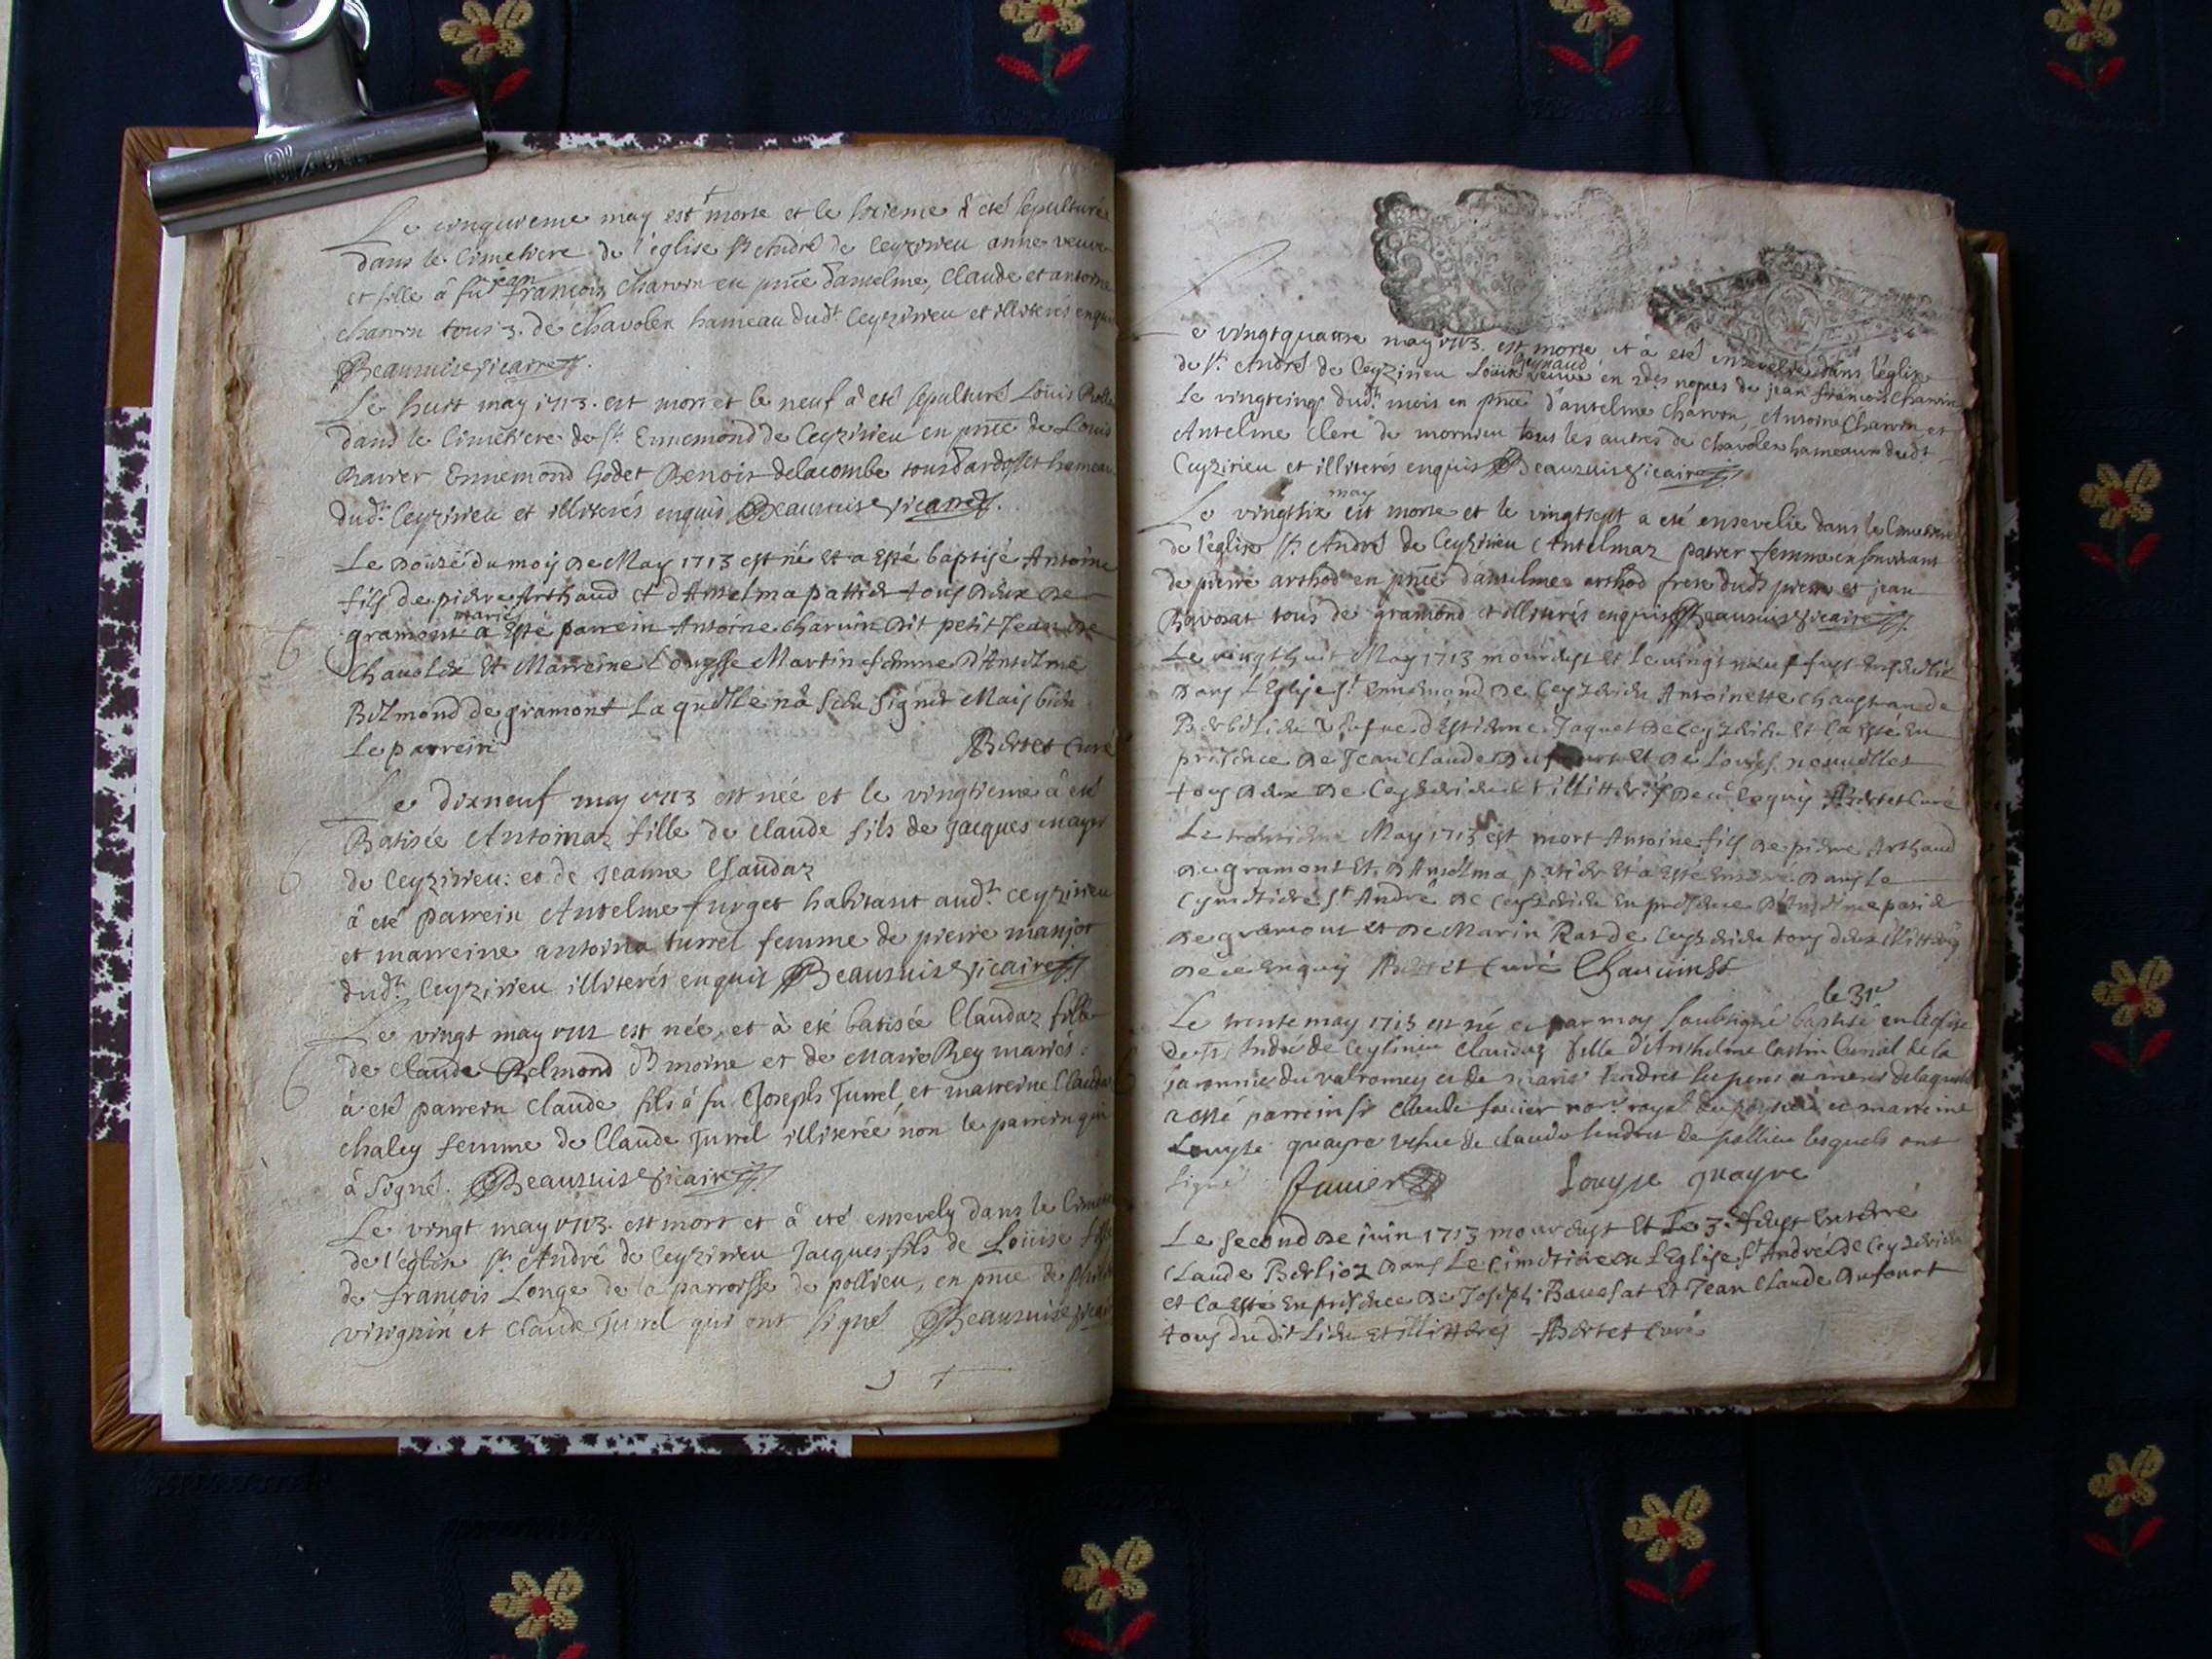 Le cinquieme may est morte et le sixieme a eté sepulturée
dans le cimetiere de l'eglise St André de Ceyzirieu anne veuve
et fille à fû jean françois charvin en pñce d'anselme, Claude et antoine
charvin tous 3. de chavolex hameau dudt. Ceyzirieu et illiterés enquis
Beausuise vicaire
Le huit may 1713. est mort et le neuf à eté sepulturé Loüis Rolle
dans le Cimetiere de St. Ennemond de Ceyzirieu en pñce de Louis
Ravier Ennemond Godet Benoit delacombe tous d'ardosset hameau
dudt. Ceyzirieu et illiterés enquis Beausuise vicaire
Le douzé du moy de May 1713 est né Et a Esté baptisé Antoine
fils de pierre Arthaud et d'Anselma pattier tous deux de
gramont mariés a Esté parrein Antoine charvin dit petit Jean de
Chavolex Et Marreine Louysse Martin femme D'Anselme
Belmond de gramont Laquelle n'a sceu signer Mais bien
Le parrein Bertet Curé
Le dixneuf may 1713 est née et le vingtieme à eté
Batisée Antoinaz fille de Claude fils de Jacques mayer
de Ceyzirieu: et de Jeanne Claudaz
à eté parrein Antelme furget habitant audt. Ceyzirieu
et marreine antoina turrel femme de pierre manjot
dudt. Ceyzirieu illiterés enquis Beausuise vicaire
Le vingt may 1712 est née, et à eté batisée Claudaz fille
de Claude Belmond B moine et de Marie Rey mariés:
à eté parrein Claude fils à fu Joseph Jurrel et marreine Claudaz
chaley femme de Claude Jurrel illiterée non le parrein qui
à signé. Beausuise vicaire
Le vingt may 1713. est mort et à eté ensevely dans le Cimetiere
de l'eglise St. André de Ceyzirieu Jacques fils de Loüise fille
de françois Longe de la parroisse de pollieu, en pñce de
virignin et Claude Jurrel qui ont signé Beausuise vicaire
Le vingtquatre may 1713. est morte, et à eté ensevelie dans l'eglise
de St. André de Ceyzirieu Loüise Reynaud veuve en 2des nopces de jean françois Charvin
Le vingtcinq dudt. mois en pñce d'antelme Charvin, Antoine Charvin et
Antelme Clerc de mornieu tous les autres de Chavolex hameaux dudt
Ceyzirieu et illiterés enquis Beausuise vicaire
Le vingtsix may est morte et le vingtsept a eté ensevelie dans le Cimetiere
de l'eglise St. André de Ceyzirieu Antelmaz patier femme en son vivant
de pierre arthod en pñce d'anselme arthod frere dudt pierre et jean
Bavosat tous de gramond et illiterés enquis Beausuise vicaire
Le vingt huit May 1713 mourust Et Le vingt neuf fust Enseuelie
Dans L'Eglise St Ennemond De Ceyzerieu Antoinette Chaustran de
vefue d'Estienne Jaquet de Ceyzerieu Et Ca Esté En
presence de Jean Claude Dufourt Et de Louys
tous deux De Ceyzerieu Et illitterés De ce Enquis Bertet Curé
Le trentième May 1713 est mort Antoine fils De pierre Arthaud
De gramont Et D'Anselma patier Et a Esté Enterré Dans Le
Cymetiere St André De Ceyzerieu En presence D'Anselme patier
De gramont et De Marin Ras de Ceyzerieu tous deux illitterés
De ce Enquis Bertet Curé Charvinst
le 31e
Le trente may 1713 est né et par moy soubsigné baptisé en l'eglise
de St. André de Ceyserieu Claudaz fille d'Anthelme Castin Curial de la
baronnie du valromey et de marie Tendret ses pere et mere de laquelle
a esté parrein Sr Claude favier nore. royal et marreine
Louyse quayre vefue de Claude tendret de pollieu lesquels ont
signé favier Louyse quayre
Le second de juin 1713 mourust Et Le 3e fust Enterré
Claude Berlioz Dans Le Cimetiere de L'Eglise St André de Ceyzerieu
et Ca Esté En presence de Joseph Bavosat Et Jean Claude Dufourt
tous du dit Lieu Et illitterés Bertet Curé